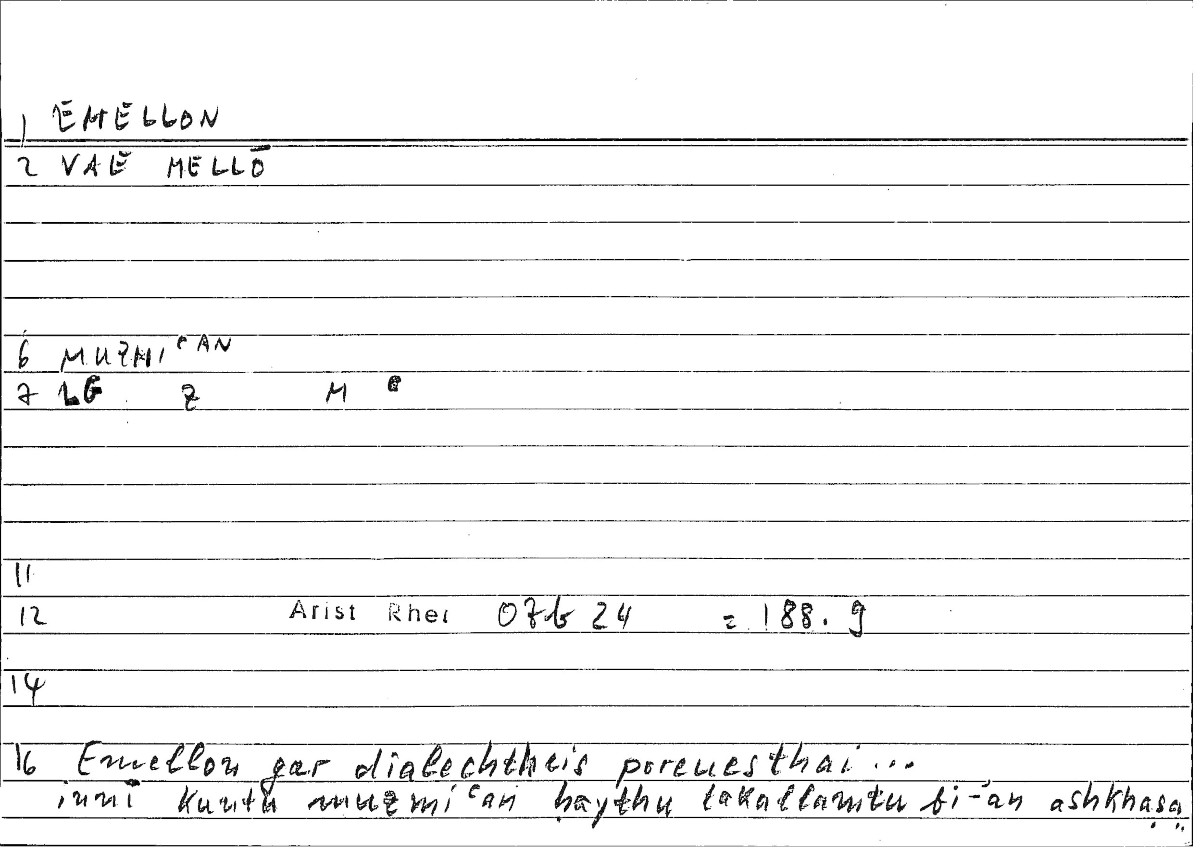 1 ĔMĔLLON
2 VAĔ MELLŌ
6 MUZMIʿAN
7 LG Z M ʿ
11
12 Arist Rhet 07b 24 = 188.9
14
16 Emellon gar dialechtheis poreuesthai...
innī kuntu muzmiʿan ḥaythu takallamtu bi-an ashkhaṣa